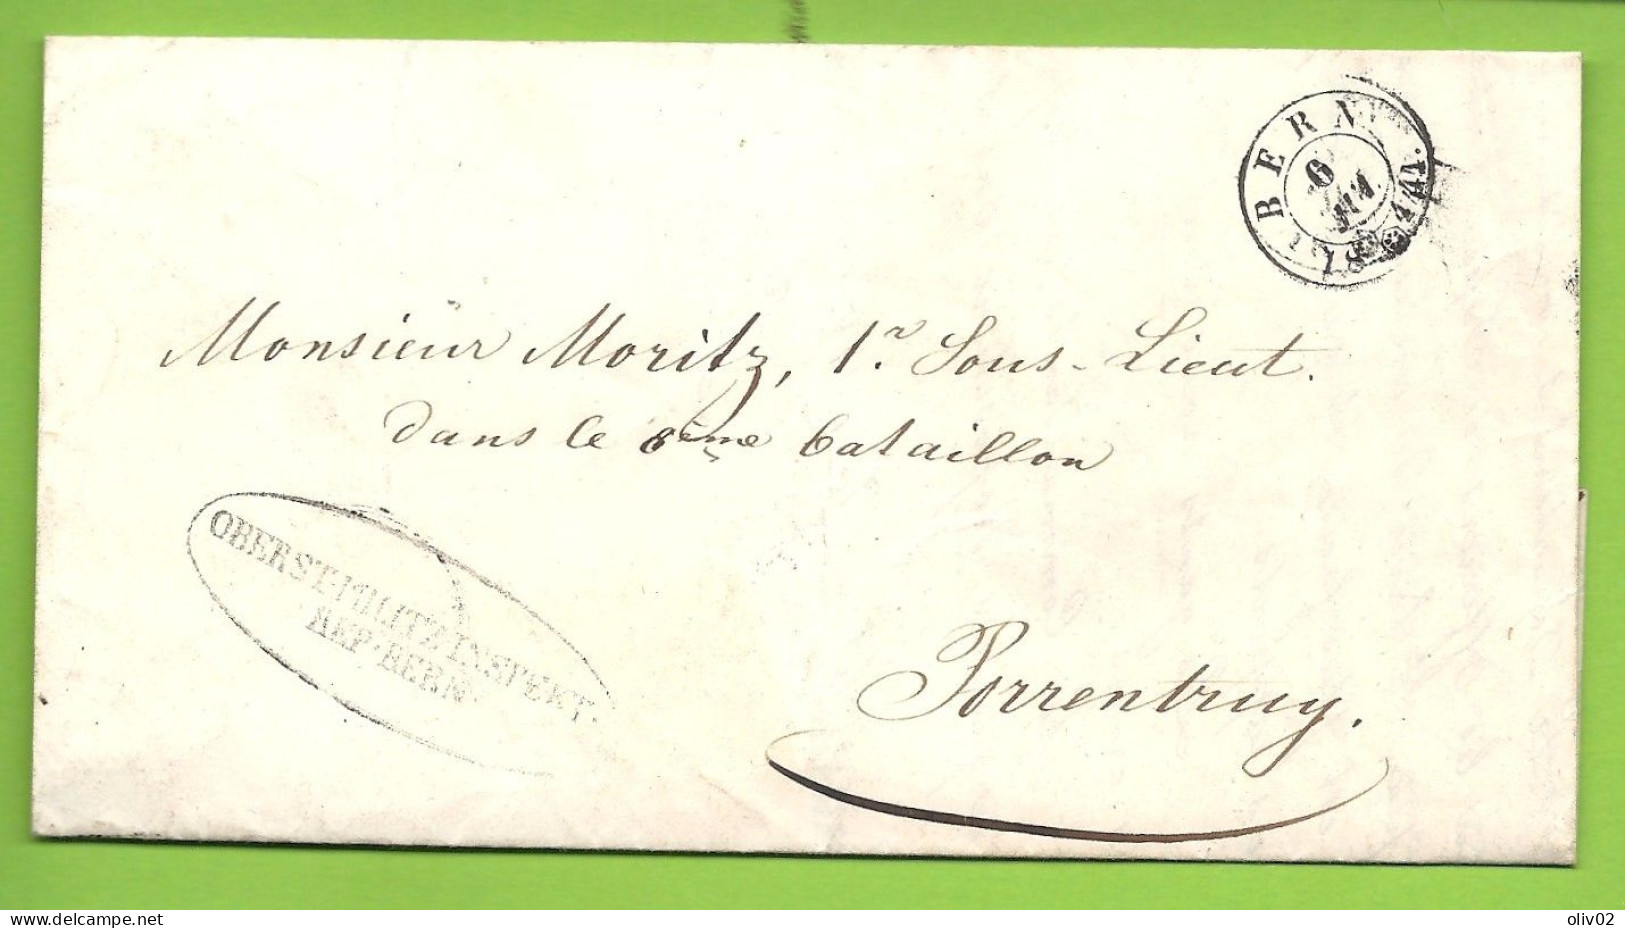 BERN
6
1844.
Monsieur Moritz, 1.r Sous-Lieut.
dans le 8ème bataillon
OBERST-MILITZINSPEKT.
REP. BERN
Porrentruy.
www.delcampe.net
oliv02